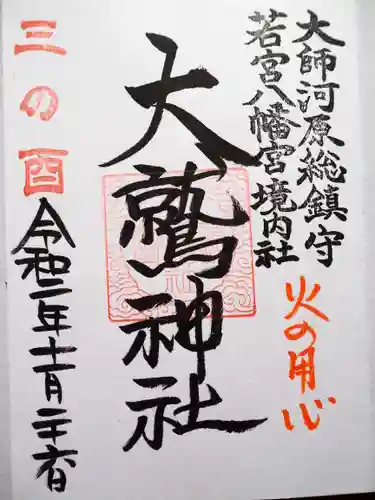 大師河原総鎮守
若宮八幡宮境内社
火の用心
大鷲神社
三の酉
令和二年十一月二十六日